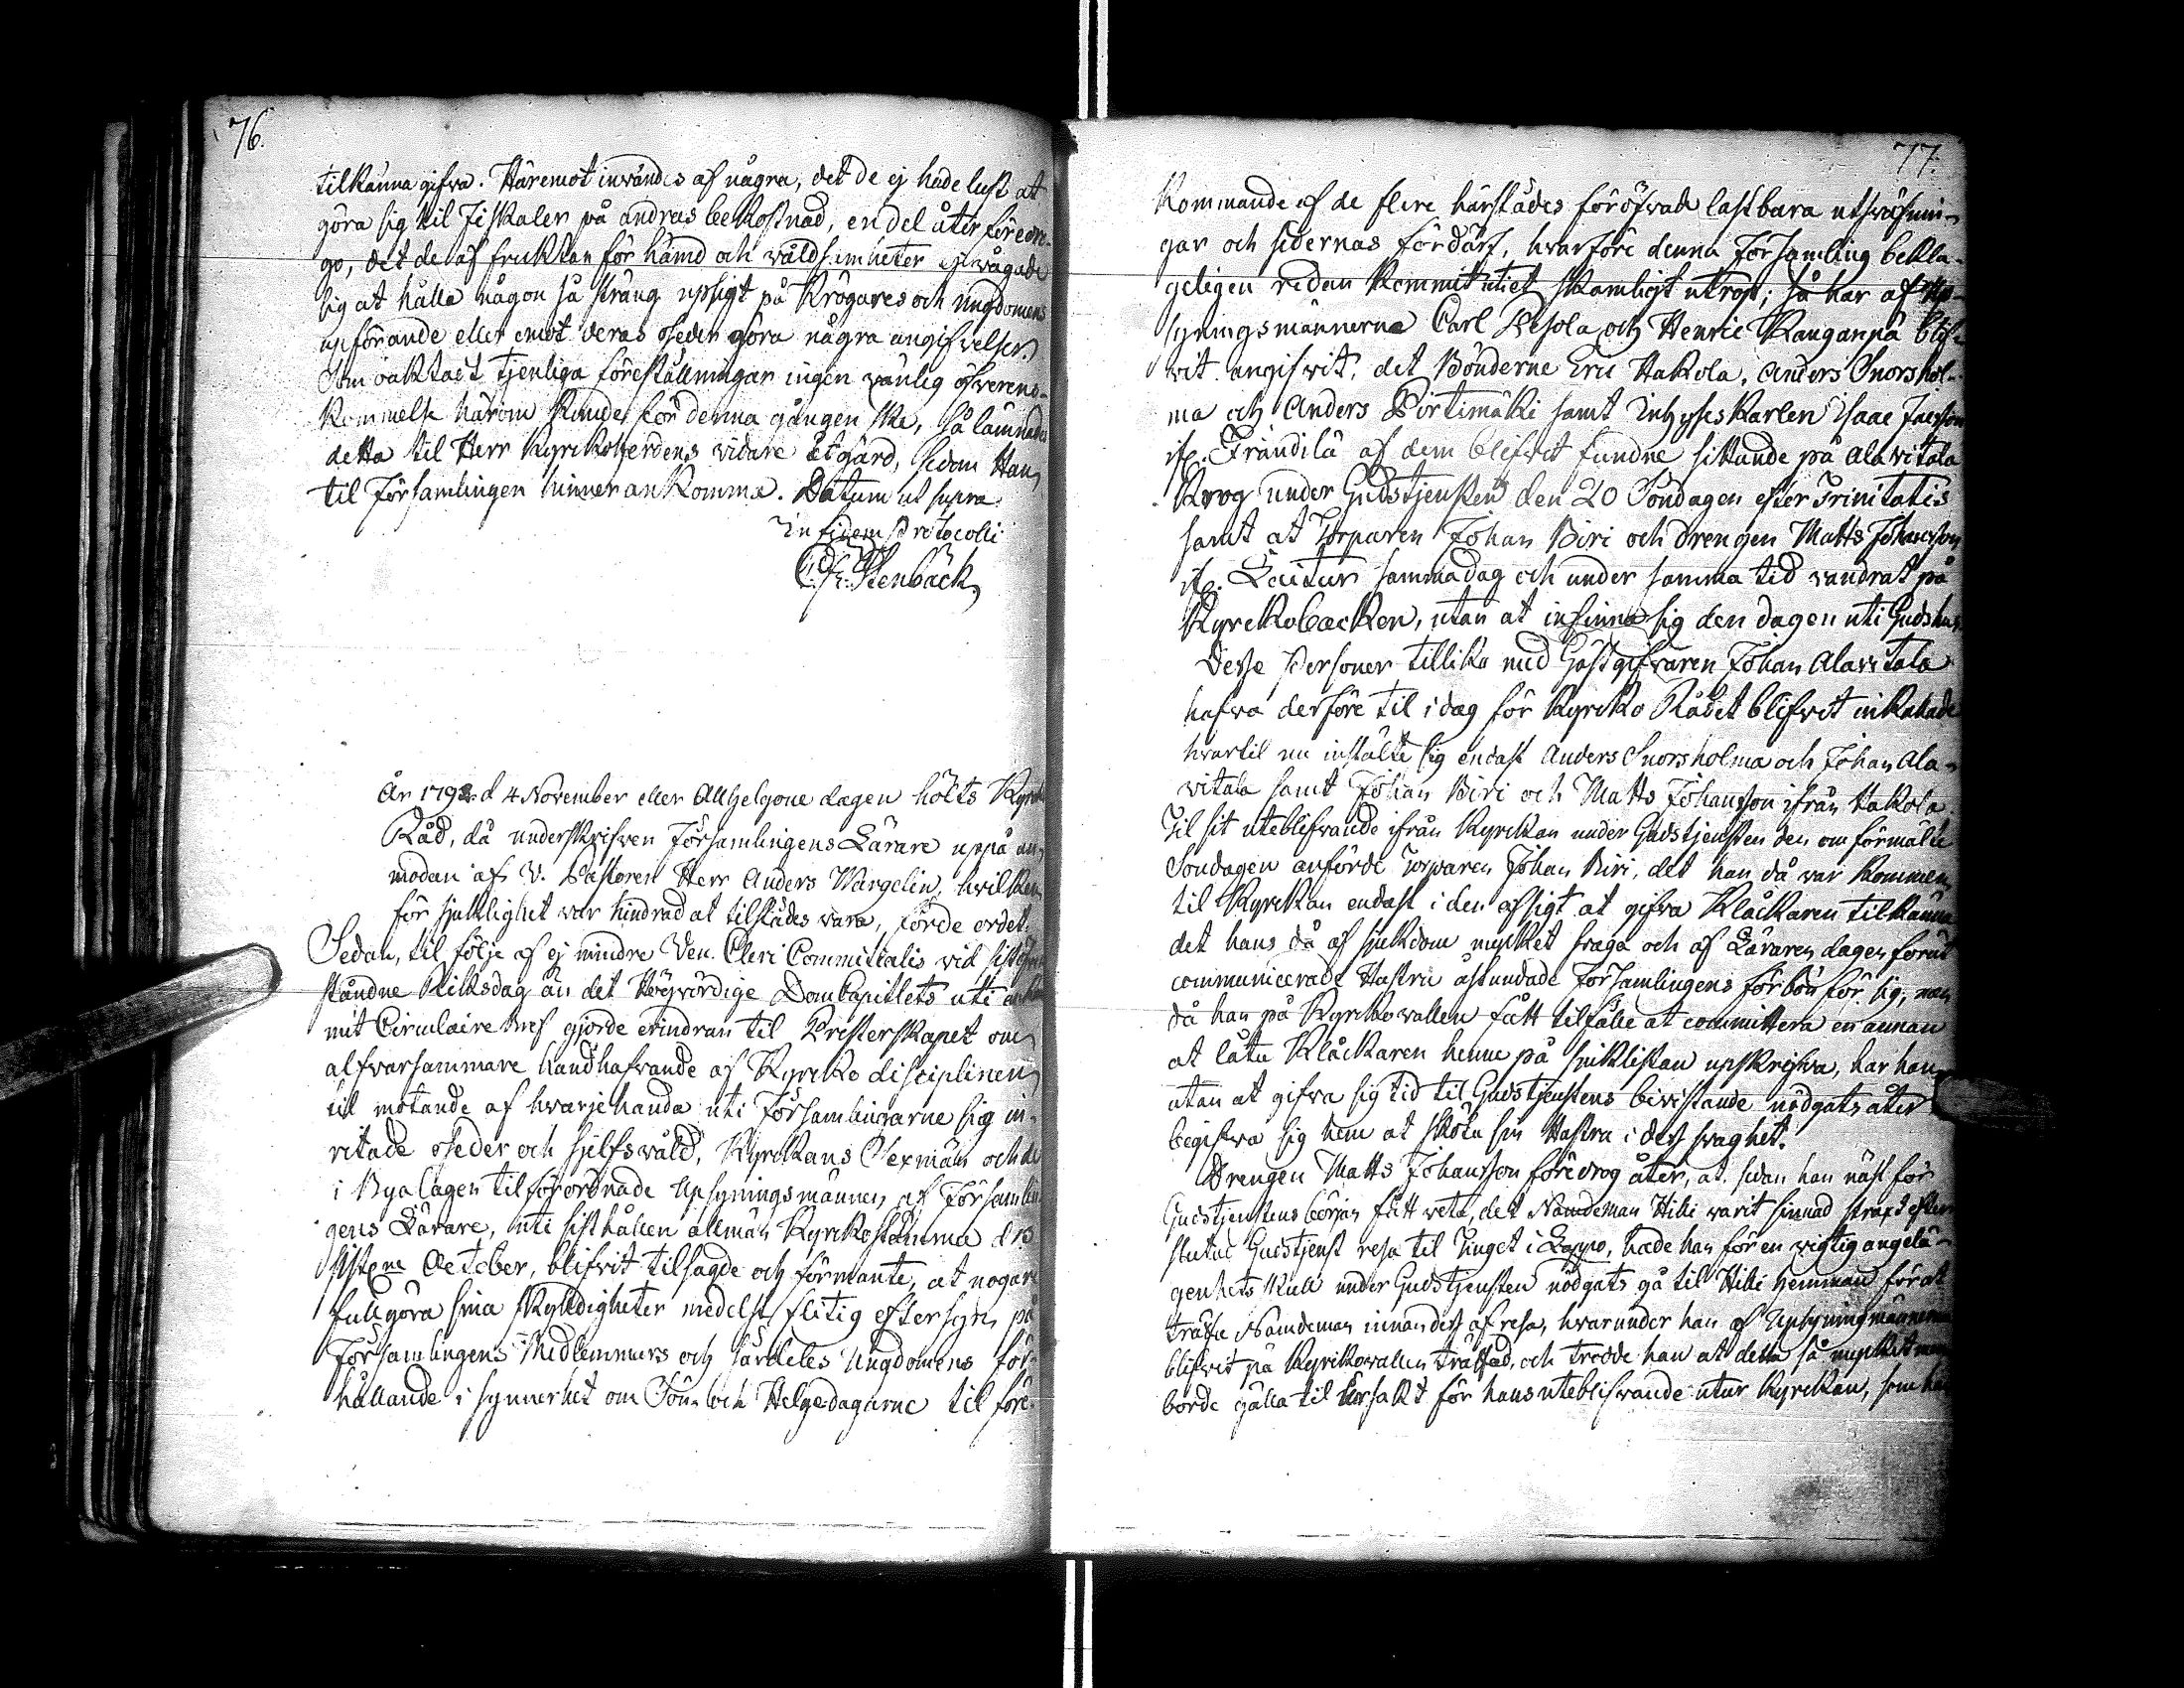 76.
tilkänna gifva. Häremot invändes af några, det de ej hade lust at
göra sig til Fiskaler på andras bekostnad, en del åter föredro-
go, det de af fruktan för hämd och våldsamheter ej vågade
sig at hålla någon så sträng upsigt på Krögares och Ungdomens
upförande eller emot deras oseder göra några angifvelser.
Som oaktadt tjenliga föreställningar ingen vänlig öfverens-
kommelse härom kunde för denna gången ske, så lämnades
detta til Herr Kyrkoherdens vidare åtgärd, sedan Han
til Församlingen hinner ankomma. Datum ut supra
In fidem Protocolli
C. Fr. Stenbäck
År 1792 d 4 November eller Allhelgone dagen hölts Kyrko
Råd, då underskrifven Församlingens Lärare uppå an-
modan af V. Pastoren Herr Anders Wargelin, hvilken
för sjuklighet var hindrad at tilstädes vara, förde ordet.
Sedan, til följe af ej mindre Ven. Cleri Comitialis vid sist
ståndne Riksdag än det Högvördige DomCapitlets uti
mit Circulaire Bref gjorde erindran til Presterskapet om
alfvarsammare handhafvande af Kyrko disciplinen
til mötande af hvarjehanda uti Församlingarne sig in-
ritade oseder och sjelfsvåld, Kyrkans Sexmän och de
i Byalagen tilförordnade Upsyningsmännen af Församlin
gens Lärare, uti sisthållen allmän Kyrkostämma d 13
sistlne October, blifvit tilsagde och förmante, at nogare
fullgöra sina skyldigheter medelst flitig eftersyn på
Församlingens Medlemmars och särdeles Ungdomens för-
hållande i synnerhet om Sön- och Helgedagarne til före-
77.
kommande af de flere härstädes föröfvade lastbara utsväfnin-
gar och sedernas fördärf, hvarföre denna Församling bekla-
geligen redan kommit uti et skamligt utrop; så har af Up-
syningsmännerne Carl Pesola och Henric Kanganpä blif-
vit angifvit, det Bönderne Eric Hakola, Anders Snorshol-
ma och Anders Portimäki samt Inhyseskarlen Isaac Jacsson
ifr. Frändilä af dem blifvit fundne sittande på Alavitala
Krog under Gudstjensten den 20 Söndagen efter Trinitatis
samt at Torparen Johan Biri och drengen Matts Johansson
ifr. Lautur samma dag och under samma tid vandrat på
Kyrkobacken, utan at infinna sig den dagen uti Gudshus.
Desse Personer tillika med Gästgifvaren Johan Alavitala
hafva derföre til i dag för Kyrko Rådet blifvit inkallade
hvartil nu instälte sig endast Anders Snorsholma och Johan Ala-
vitala samt Johan Biri och Matts Johansson ifrån Hakola.
Til sit uteblifvande ifrån Kyrckan under Gudstjensten den omförmälte
Söndagen anförde Torparen Johan Biri, det han då var kommen
til Kyrckan endast i den afsigt at gifva Klåckaren tilkänna
det hans då af sjukdom mycket svaga och af Läraren dagen förut
communicerade Hustru åstundade Församlingens förbön för sig; men
då han på Kyrkovallen fått tilfälle at committera en annan
at låta Klåckaren henne på sjuklistan upskrifva, har han
utan at gifva sig tid til Gudstjenstens bivistande nödgats åter
begifva sig hem at sköta sin Hustru i dess svaghet.
Drengen Matts Johansson föredrog åter, at sedan han näst för
Gudstjenstens början fått veta, det Nämdeman Hilli varit sinnad straxt efter
slutad Gudstjenst resa til Tinget i Lappo, hade han för en vigtig angelä-
genhets skull under Gudstjensten nödgats gå til Hilli hemman för at
träffa Nämdeman innan dess afresa, hvarunder han af Upsyningsmännerna
blifvit på Kyrkovallen träffad, och trodde han at detta så mycket mer
borde gälla til ursäkt för hans uteblifvande utur Kyrckan, som han